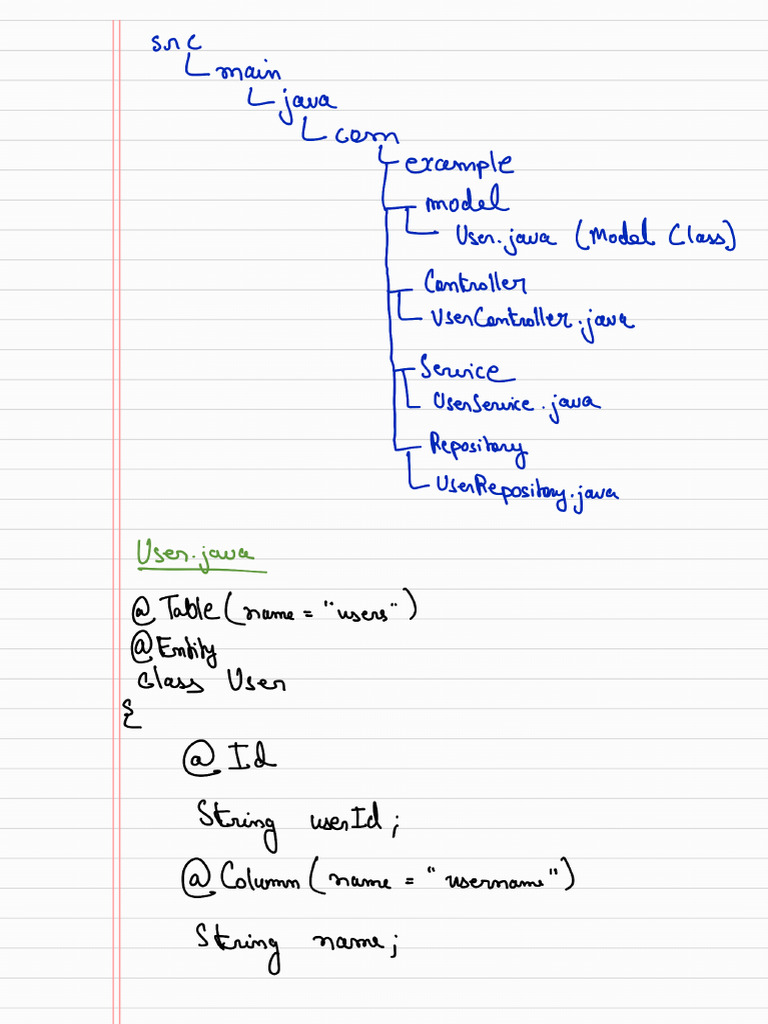 src
main
java
com
example
model
User.java (Model Class)
Controller
UserController.java
Service
UserService.java
Repository
UserRepository.java
User.java
@Table(name = "users")
@Entity
Class User
{
@Id
String userId;
@Column(name = "username")
String name;